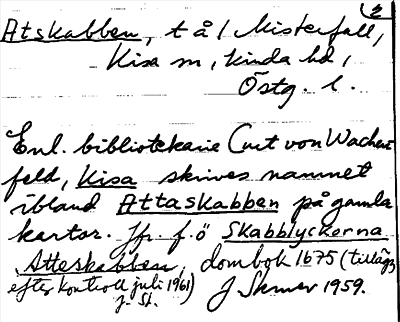 2
Atskabben, t å / Misterfall,
Kisa sn, Kinda hd,
Östg. l.
Enl. bibliotekarie Curt von Wachen-
feld, Kisa skrives namnet
ibland Attaskabben på gamla
kartor. Jfr. f.ö Skabblyckorna
Atteskabben, dombok 1675 (tillägg
efter kontroll juli 1961)
J. St. J Skmer 1959.